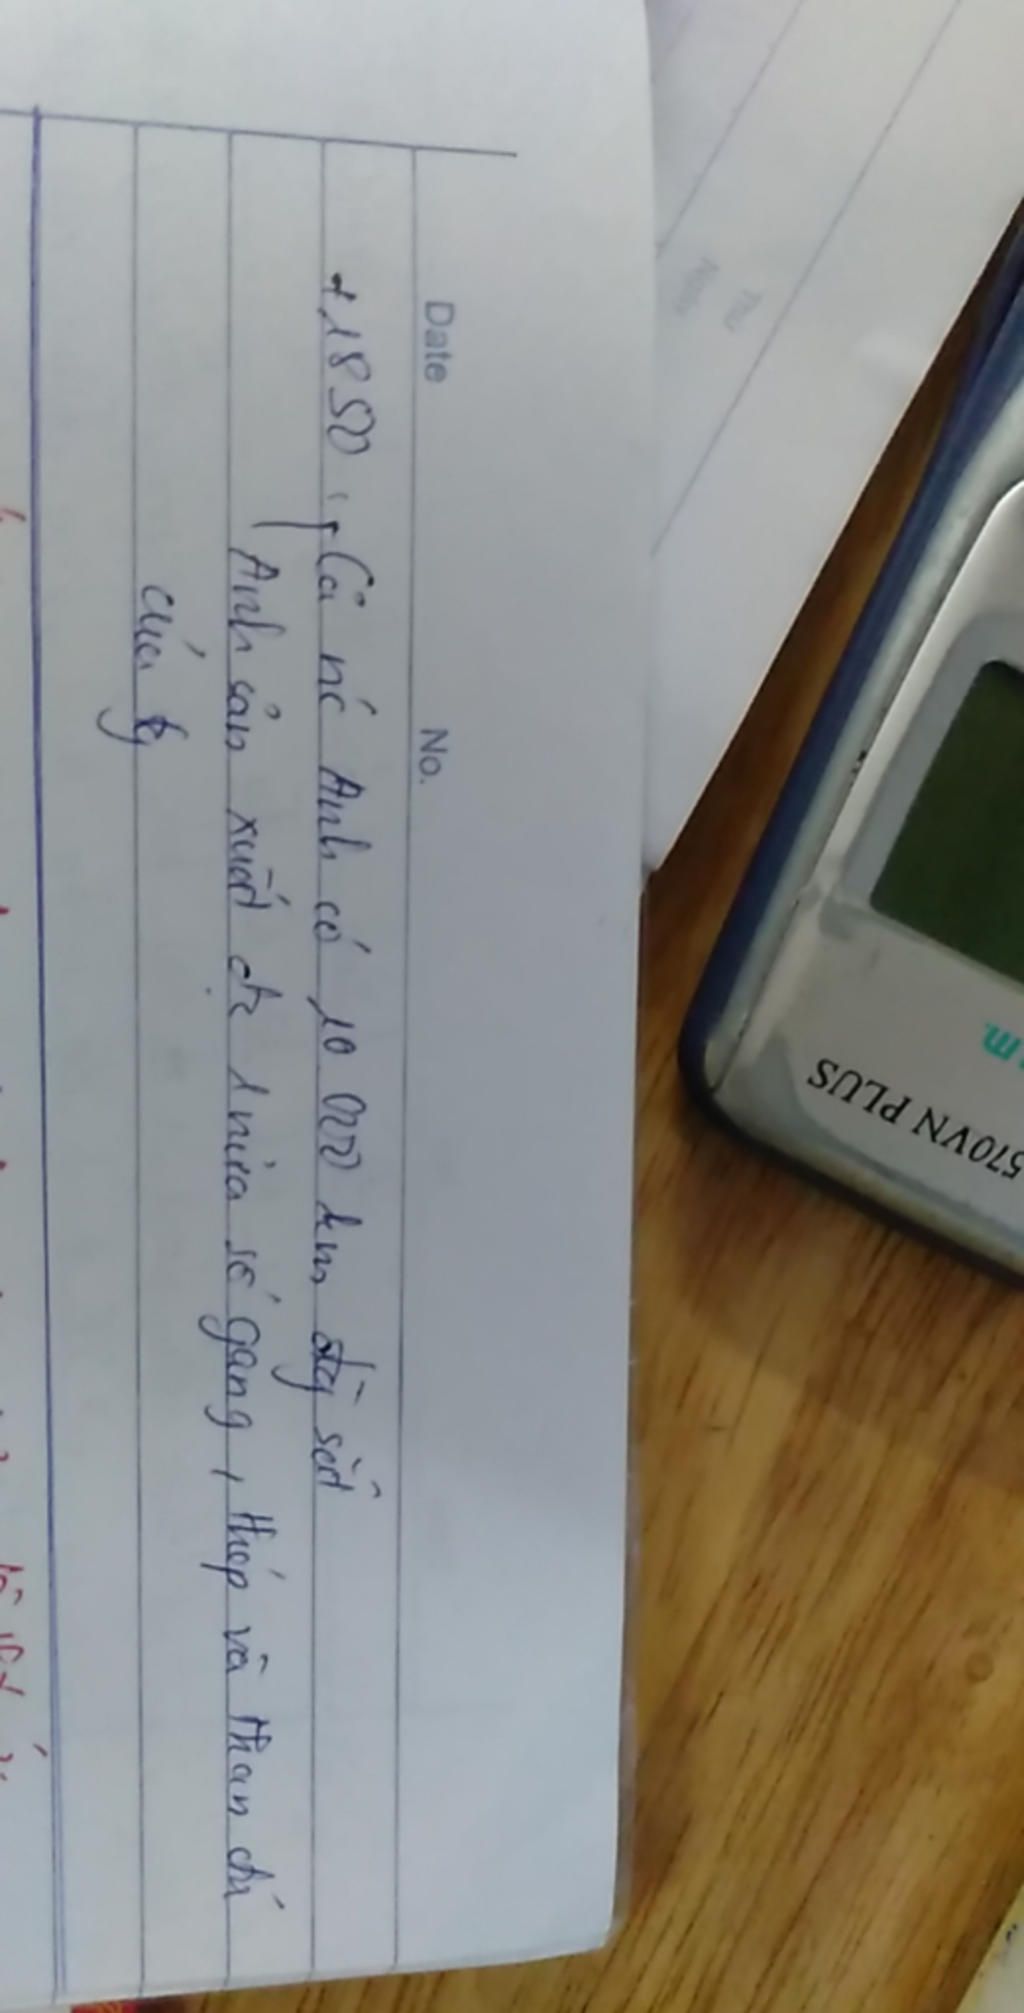 Date No.
+, 1850: Cả nc Anh có 10.000 km đg sắt
Anh sản xuất đc 1 nửa số gang, thép và than đá
của tg
570VN PLUS